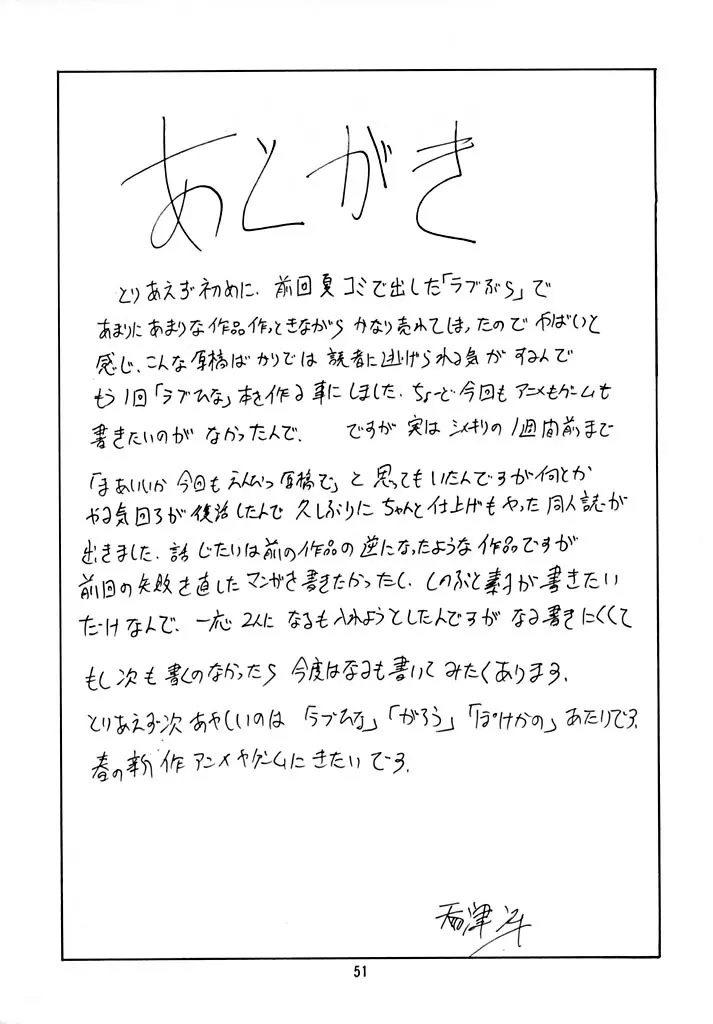 あとがき
とりあえず初めに、前回夏コミで出した「ラブぶら」で
あまりにあまりな作品作っときながら かなり売れてしまったので やばいと
感じ、こんな原稿ばかりでは 読者に逃げられる気が するんで
もう1回「ラブひな」本を作る事にしました。ちょーど今回も アニメもゲームも
書きたいのが なかったんで、 ですが 実は シメキリの1週間前まで
「まあいいか 今回も えんぴつ原稿で」と 思っても いたんですが 何とか
やる気回ろが 復活したんで 久しぶりに ちゃんと仕上げもやった 同人誌が
出きました。話じたいは前の作品の逆になったような作品ですが
前回の失敗を直したマンガを書きたかったし、しのぶと素子が書きたい
だけなんで、一応2人に なるも入れようとしたんですが なる書きにくくて
もし次も書くのなかったら 今度はなるも書いてみたくあります。
とりあえず次 あやしいのは 「ラブひな」「がろう」「ぽけかの」あたりです。
春の新作アニメやゲームにきたいです。
51